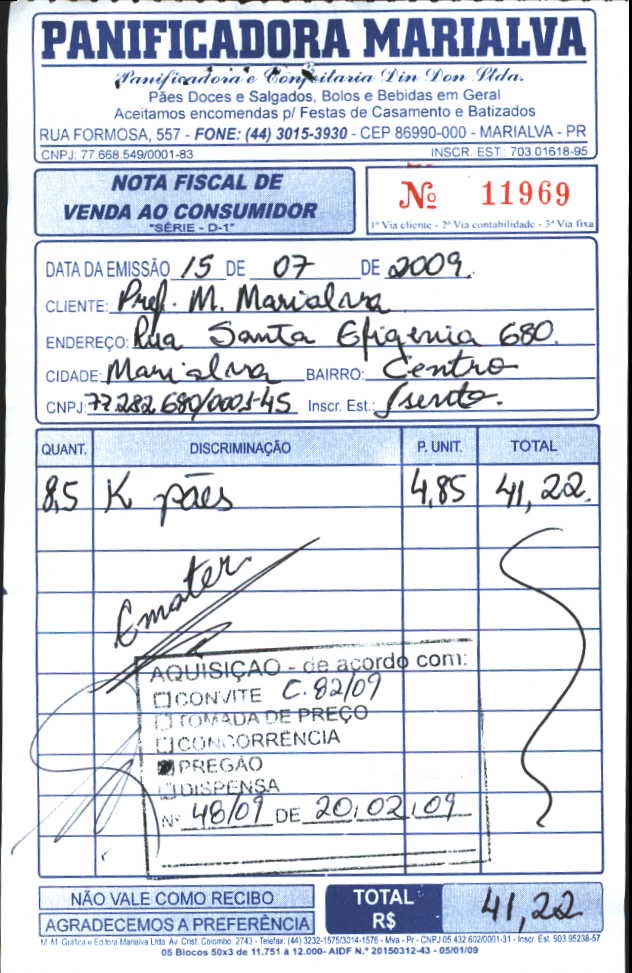 PANIFICADORA MARIALVA
Panificadora e Confeitaria Din Don Ltda.
Pães Doces e Salgados, Bolos e Bebidas em Geral
Aceitamos encomendas p/ Festas de Casamento e Batizados
RUA FORMOSA, 557 - FONE: (44) 3015-3930 - CEP 86990-000 - MARIALVA - PR
CNPJ: 77.668.549/0001-83 INSCR. EST.: 703.01618-95
NOTA FISCAL DE
VENDA AO CONSUMIDOR
"SÉRIE - D-1"
Nº 11969
1ª Via cliente - 2ª Via contabilidade - 3ª Via fixa
DATA DA EMISSÃO 15 DE 07 DE 2009.
CLIENTE: Pref. M. Marialva
ENDEREÇO: Rua Santa Efigenia 680.
CIDADE: Marialva BAIRRO: Centro
CNPJ: 77.282.680/0001-45 Inscr. Est.: Isento.
QUANT. DISCRIMINAÇÃO P. UNIT. TOTAL
8,5 K pães 4,85 41,22.
Emater
AQUISIÇÃO - de acordo com:
CONVITE C. 82/09
TOMADA DE PREÇO
CONCORRÊNCIA
PREGÃO
DISPENSA
Nº 48/09 DE 20,02,09
NÃO VALE COMO RECIBO
AGRADECEMOS A PREFERÊNCIA
TOTAL R$ 41,22
M. M. Gráfica e Editora Marialva Ltda. Av. Crist. Colombo, 2743 - Telefax: (44) 3232-1575/3014-1576 - Mva - Pr - CNPJ 05.432.602/0001-31 - Inscr. Est. 903.95238-57
05 Blocos 50x3 de 11.751 à 12.000- AIDF N.º 20150312-43 - 05/01/09